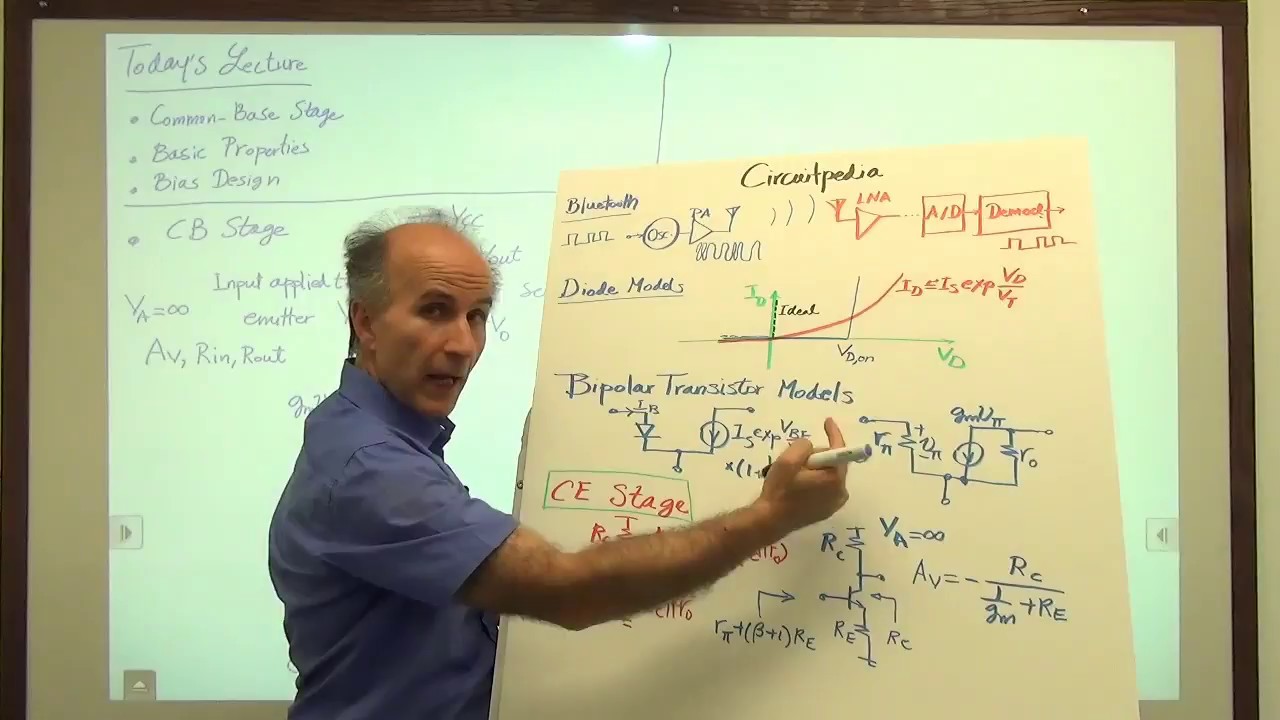 Today's Lecture
• Common-Base Stage
• Basic Properties
• Bias Design
• CB Stage
Input applied
emitter
VA=∞
Av, Rin, Rout
VCC
Circuitpedia
Bluetooth
Osc.
PA
LNA
A/D
Demod
Diode Models
ID
Ideal
ID = IS exp VD/VT
VD,on
VD
Bipolar Transistor Models
IB
IS exp VBE
×(1+
rπ
+
vπ
-
gmvπ
ro
CE Stage
RC
VA=∞
RC
Av = - RC / (1/gm + RE)
rπ+(β+1)RE
RE
RC